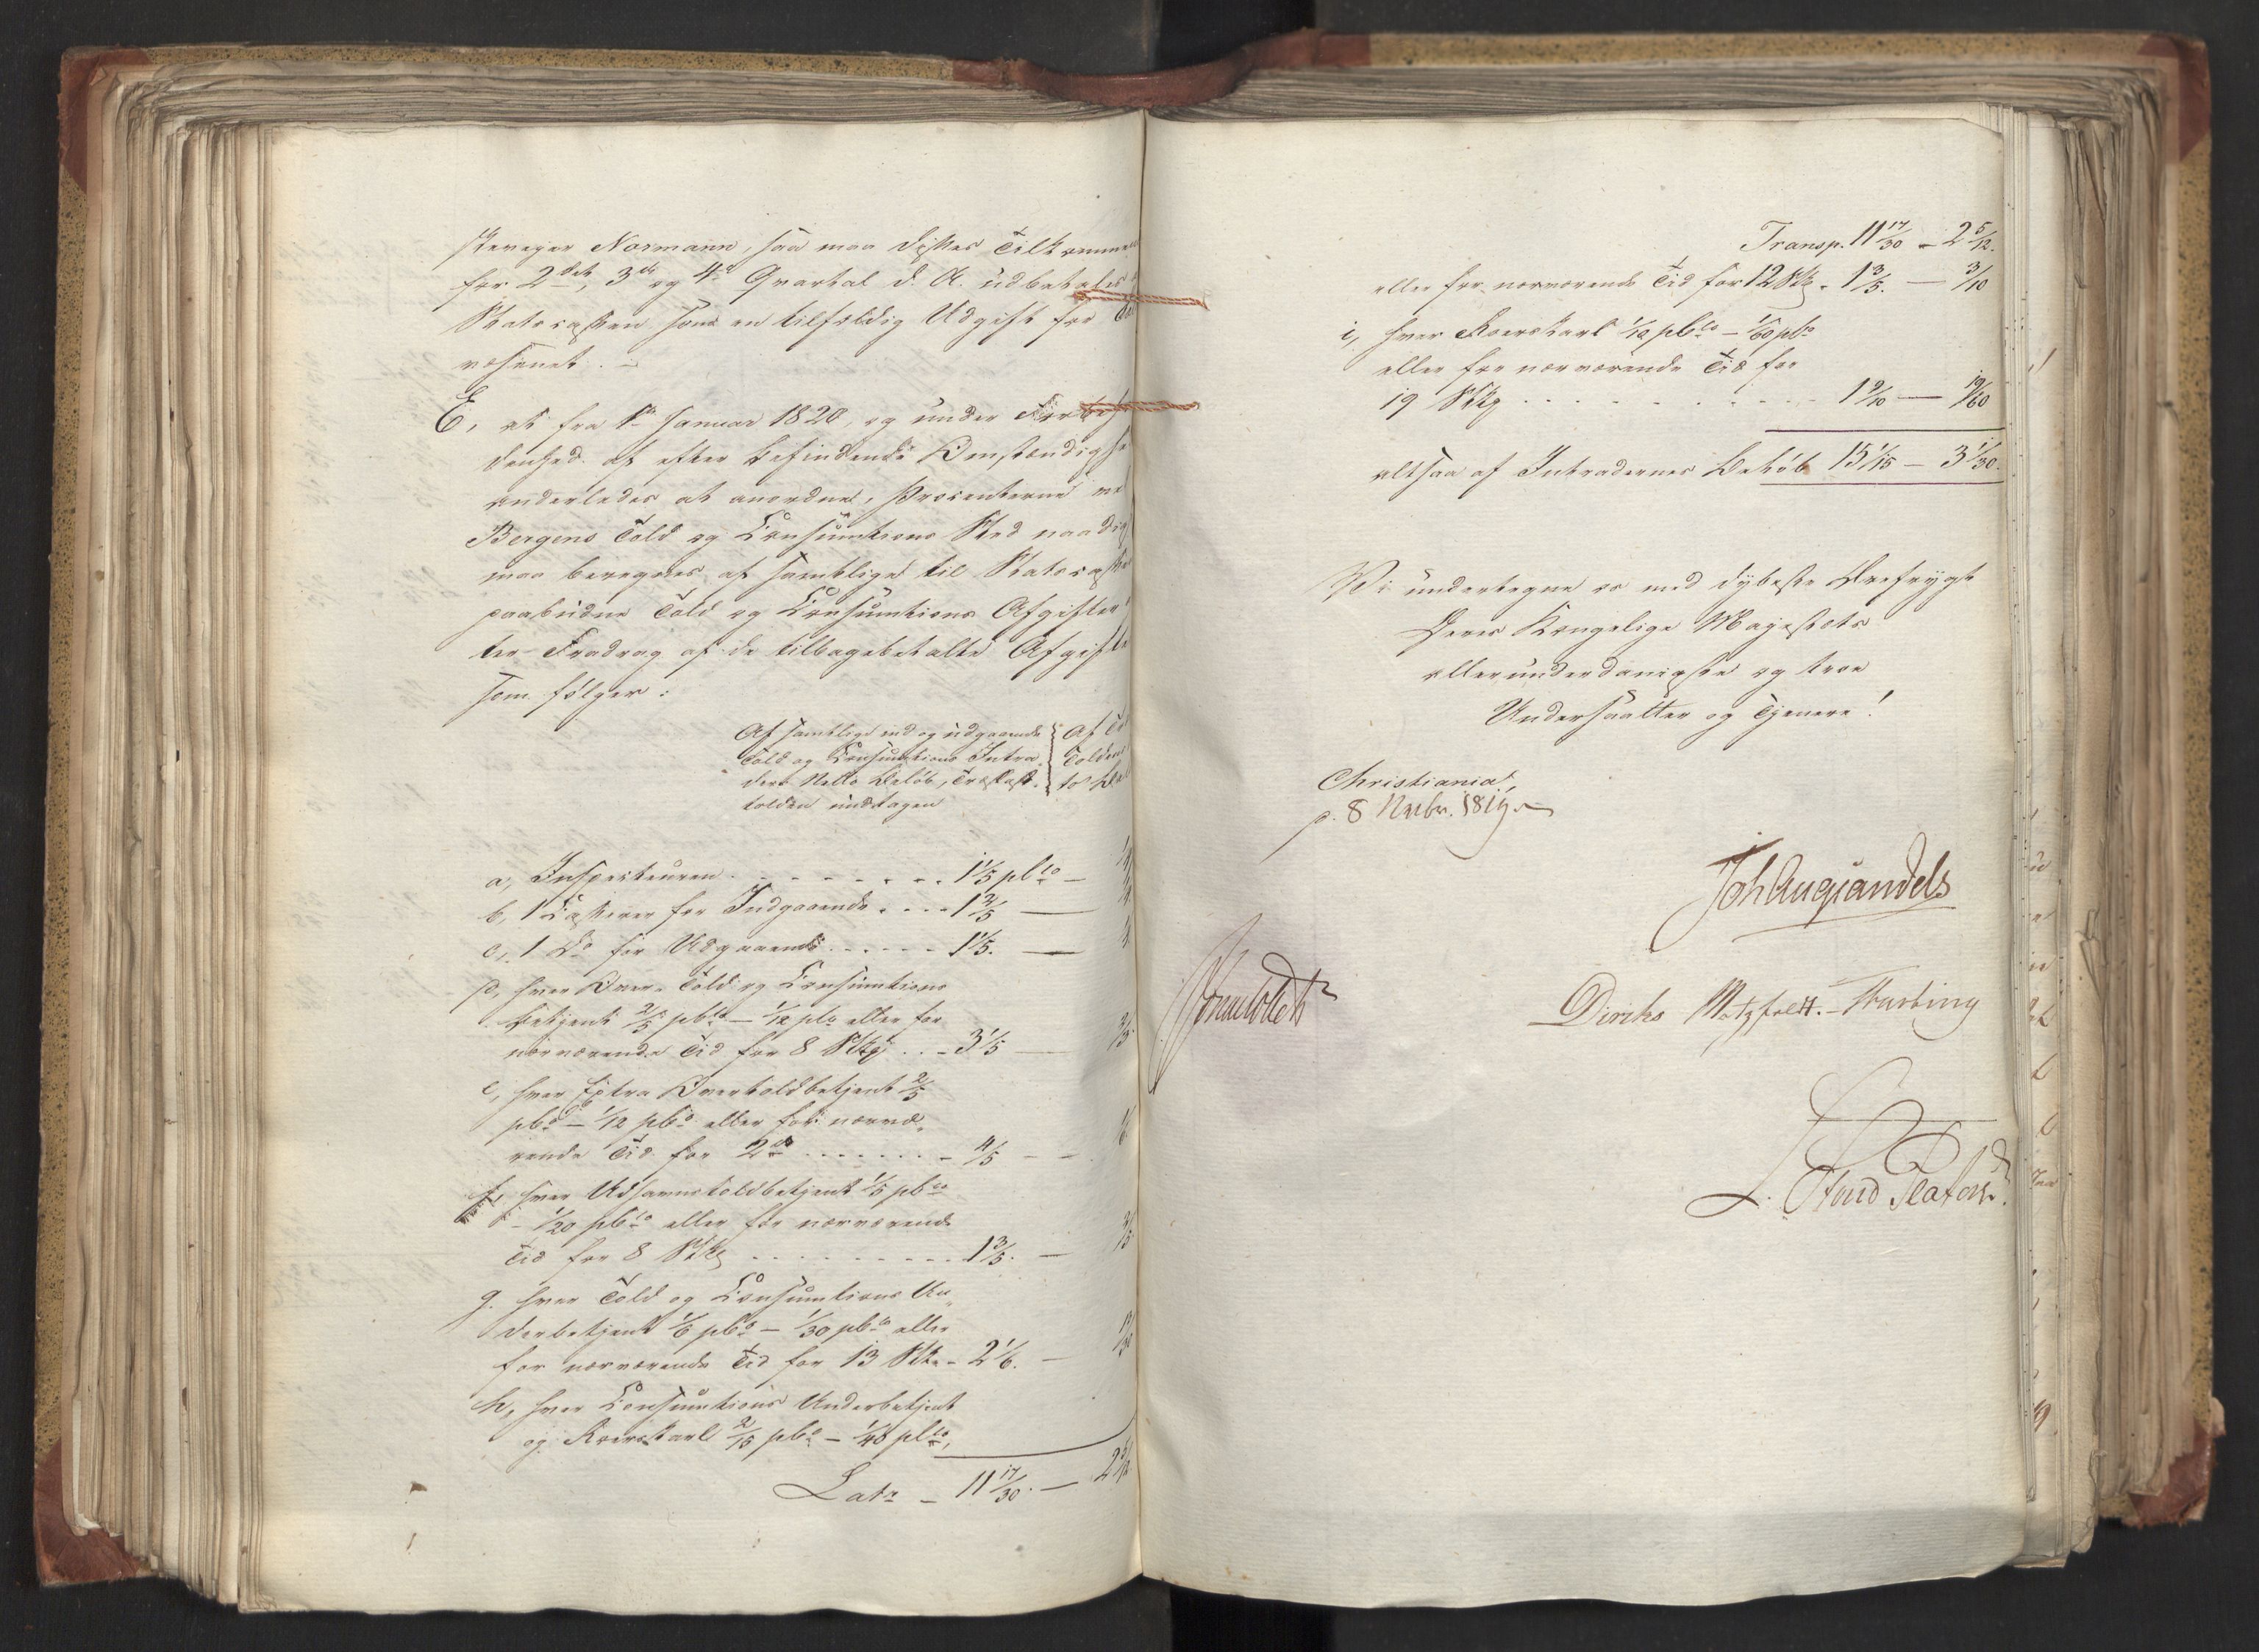 skriver Normann, saa maa disses Tilkomme
for 2det, 3de og 4de Qvartal d. A. udbetales
Statscassen som en tilfældig Udgift for
væsenet.
E, at fra 1te Januar 1820, og under
denhed af efter befindende Omstændighe
anderledes at anordne, Procenterne ve
Bergens Told og Consumtions Sted naadigst
maa beregnes af samtlige til Statscassen
paabudne Told og Consumtions Afgifter
ter Fradrag af de tilbagebetalte Afgifte
som følger:
Af samtlige ind og udgaaende
Told og Consumtions Intra-
ders Netto Beløb, Trælast-
tolden undtagen
Af
Tolden
to Be
a, Inspecteuren 1 1/5 pCto —
b, 1 Casserer for Indgaaende 1 2/5 —
c, 1 Do for Udgaaende 1 1/5. —
d, hver Over- Told og Consumtions
betjent 2/5 pCto — 1/12 pCto eller for
nærværende Tid for 8 Stkr 3 1/5 —
e, hver Extra Overtoldbetjent 2/5
pCto — 1/12 pCto eller for nærvæ-
rende Tid for 2de 4/5 —
f, hver Udhavnstoldbetjent 1/5 pCto
— 1/20 pCto eller for nærværende
Tid for 8 Stkr 1 3/5. — 2/5
g. hver Told og Consumtions Un-
derbetjent 1/6 pCto — 1/30 pCto eller
for nærværende Tid for 13 Stkr - 2 1/6. — 13/30
h, hver Consumtions Underbetjent
og Roerskarl 2/15 pCto — 1/40 pCto,
Lats — 11 17/30. — 2 5/12
Transp. 11 17/30 — 2 5/12.
eller for nærværende Tid for 12 Stkr - 1 3/5. — 3/10
i, hver Roerskarl 1/10 pCto — 1/60 pCto
eller for nærværende Tid for
19 Stkr 1 9/10 — 19/60
altsaa af Intradernes Beløb 15 1/15 — 3 1/30.
Vi undertegne os med dybeste Ærefrygt
Deres Kongelige Majestæts
allerunderdanigste og troe
Undersaatter og Tjenere!
Christiania,
p. 8 Novbr. 1819.
Joh Aug Sandels
Diriks Motzfeldt. Fasting
L. Stoud Platou